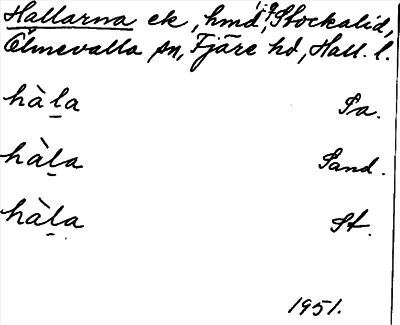 Hallarna ek, hmd, i Stockalid,
Ölmevalla sn, Fjäre hd, Hall. l.
hàl̠a Pa.
hàl̠a Sand.
hàl̠a St.
1951.